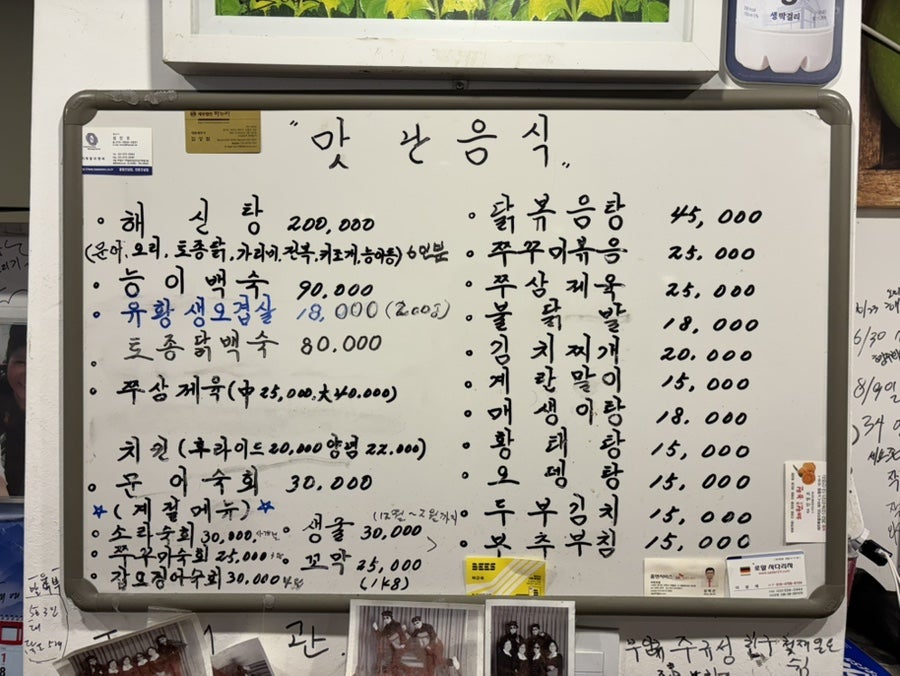 생막걸리
"맛 난 음 식"
해 신 탕 200,000
(문어, 오리, 토종닭, 가리비, 전복, 키조개, 능이등) 6인분
능 이 백 숙 90,000
유황 생오겹살 18,000 (200g)
토종닭백숙 80,000
쭈삼제육(中25,000, 大40,000)
치킨(후라이드20,000 양념 22,000)
문 어 숙 회 30,000
(계절메뉴)
소라숙회 30,000
쭈꾸미숙회 25,000
갑오징어숙회 30,000
생굴 30,000
꼬막 25,000
(1kg)
닭 볶 음 탕 45,000
쭈꾸미볶음 25,000
쭈 삼 제 육 25,000
불 닭 발 18,000
김 치 찌 개 20,000
계 란 말 이 15,000
매 생 이 탕 18,000
황 태 탕 15,000
오 뎅 탕 15,000
두 부 김 치 15,000
부 추 부 침 15,000
BEES
로얄 사다리차
6/30
8/9일
34
관
주규성 친구